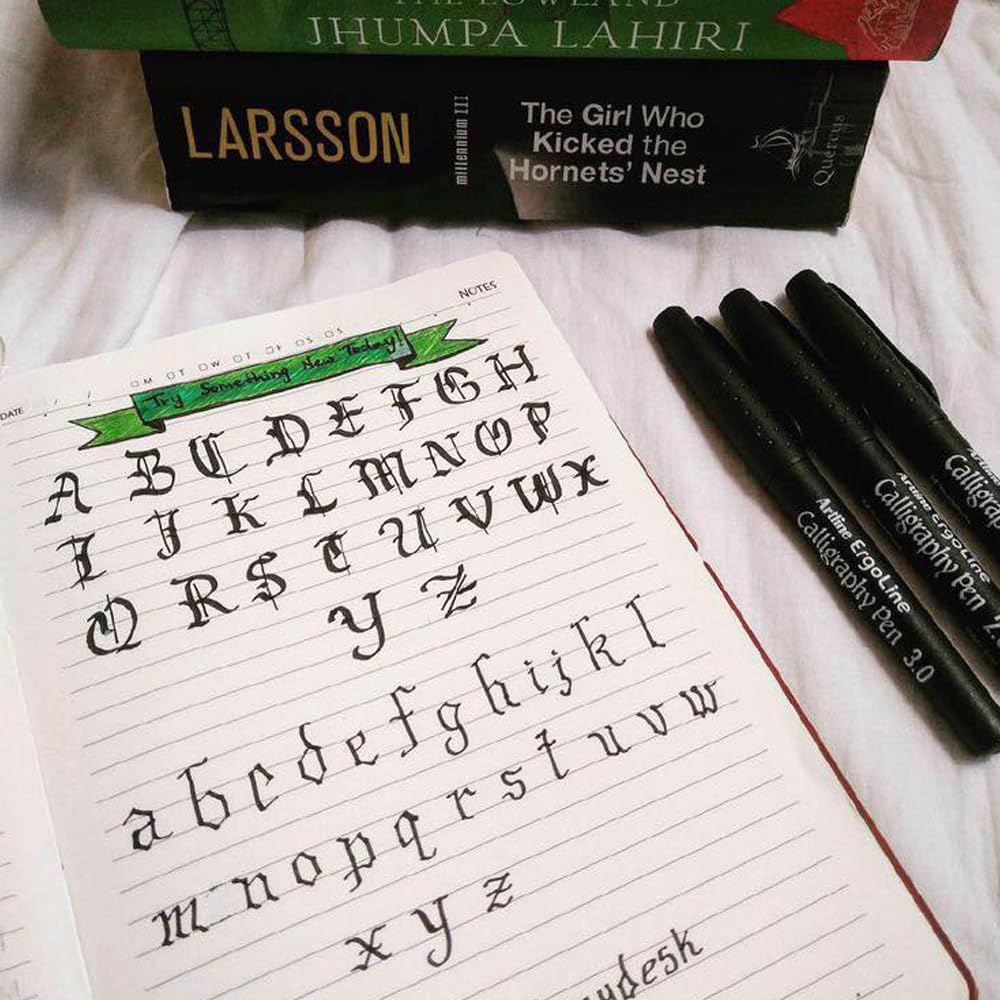 THE LOWLAND
JHUMPA LAHIRI
LARSSON
millennium III
The Girl Who
Kicked the
Hornets' Nest
Quercus
NOTES
DATE / /
□M □T □W □T □F □S □S
Try Something New Today!
A B C D E F G H
I J K L M N O P
Q R S T U V W X
Y Z
a b c d e f g h i j k l
m n o p q r s t u v w
x y z
Artline ErgoLine
Calligraphy Pen 3.0
Artline ErgoLine
Calligraphy Pen